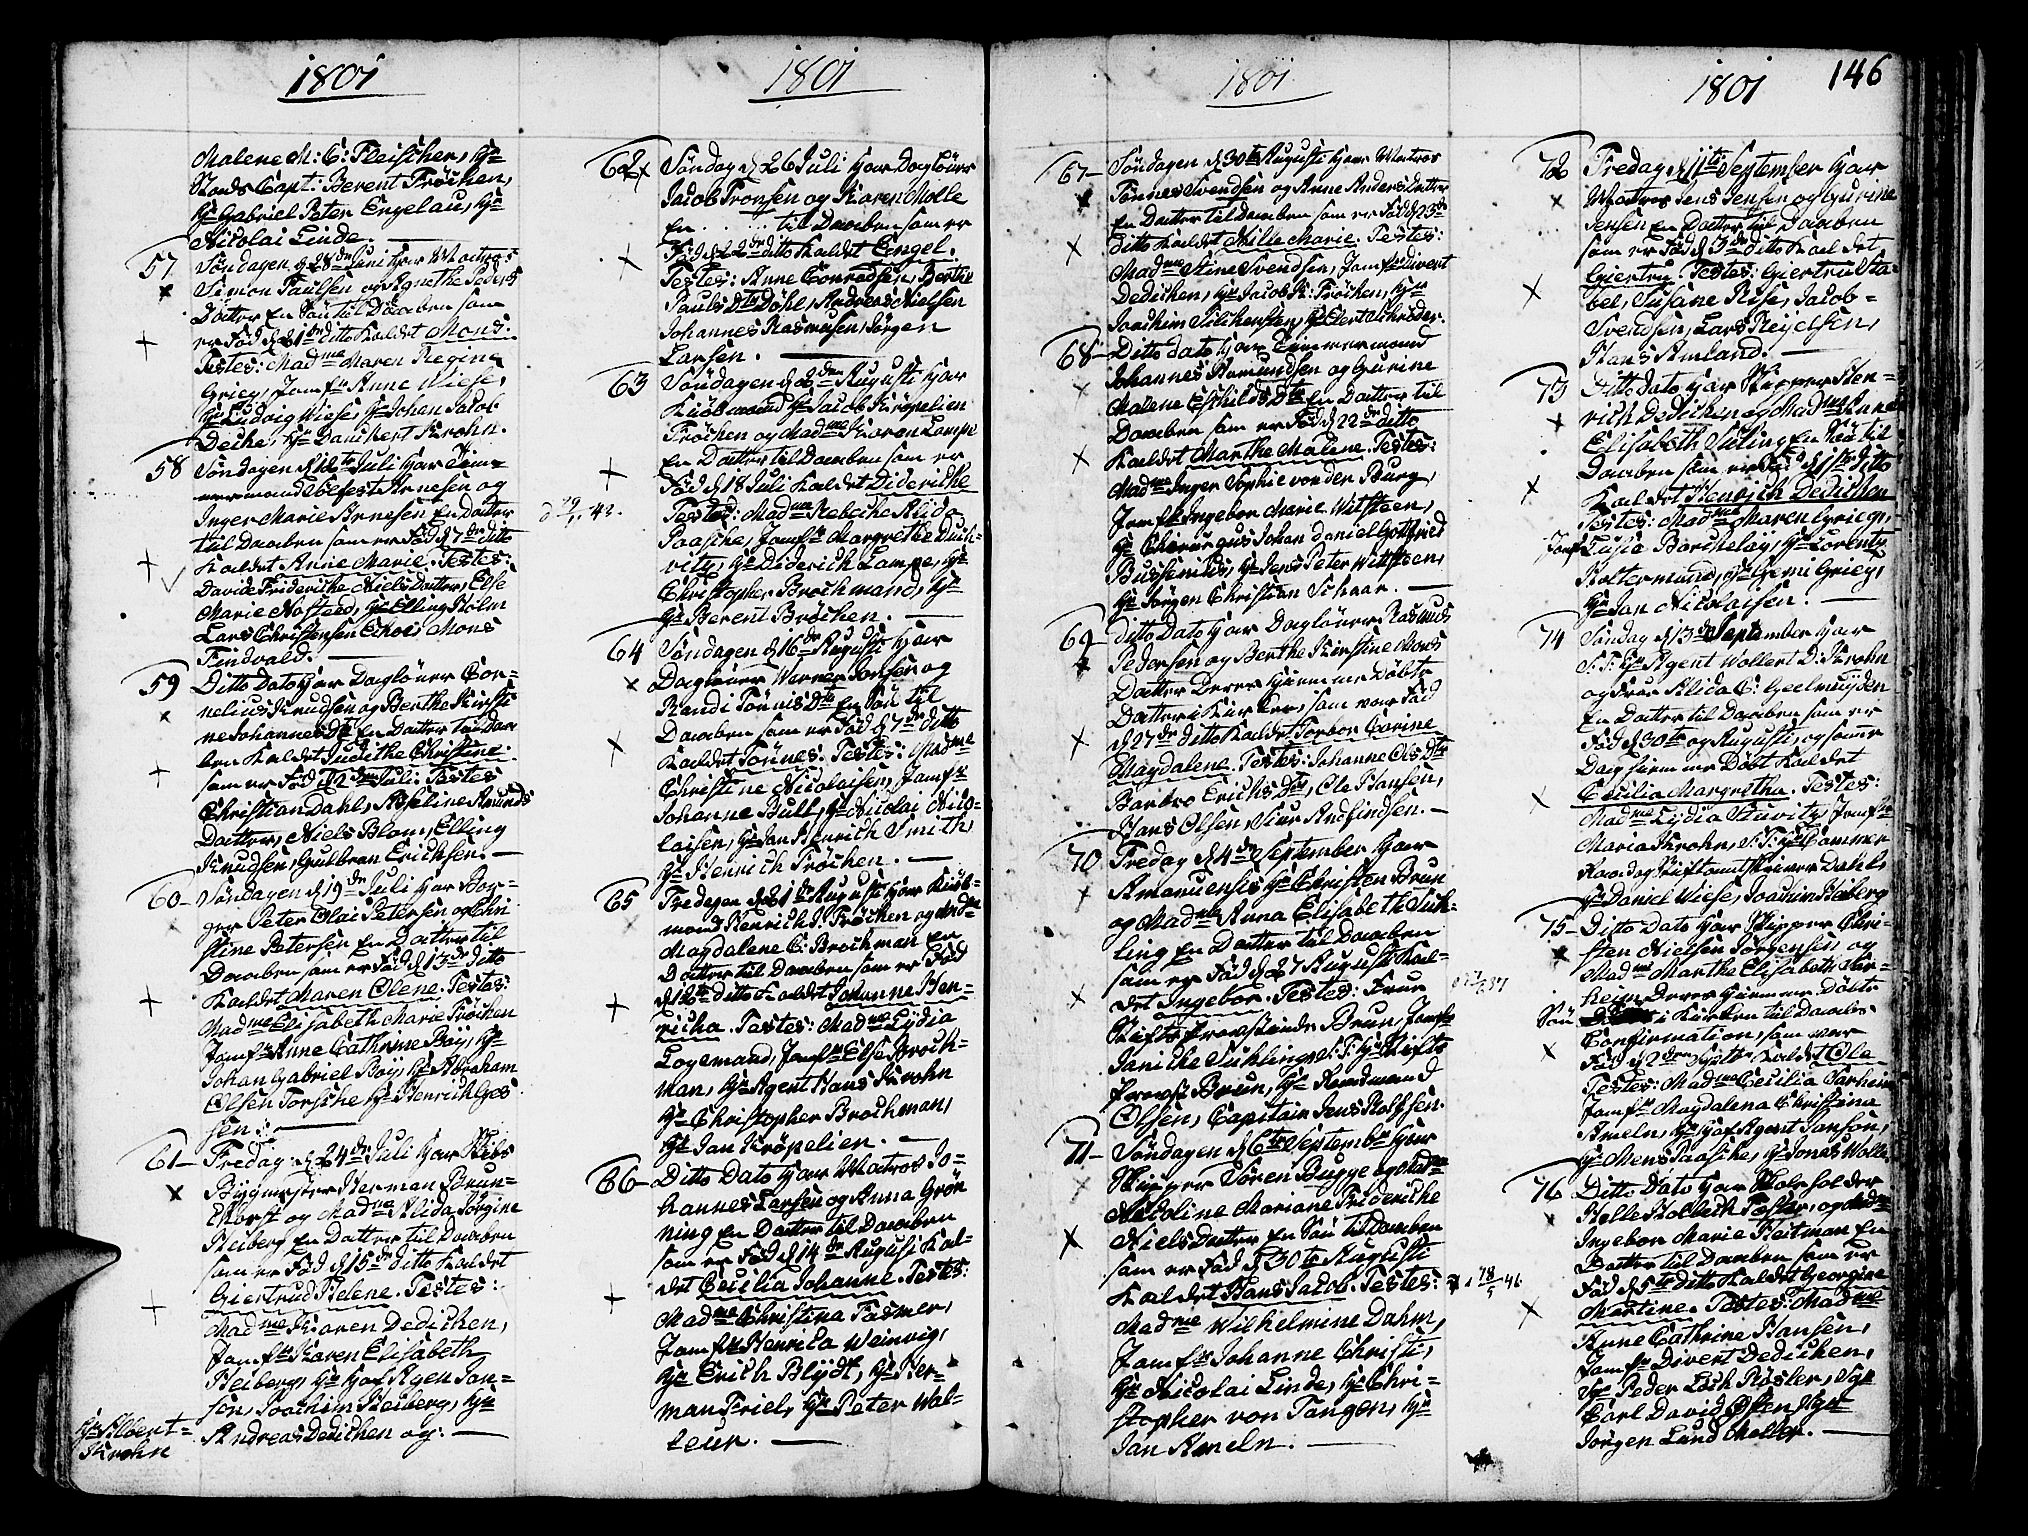 1801
Malene M: C: Fleischer, Hr
Stads Capt: Berent Fröchen,
Hr Gabriel Peter Engelau, Hr
Nicolai Linde.
57 Söndagen d 28de Juni har Matros
Simon Paulsen og Agnethe Peders
Datter En Sön til Daaben som
er Föd d 21de ditto Kaldet Mons.
Testes: Madme Maren Regine
Grieg, Jomfr Anne Wiese,
Hr Ludvig Wiese, Hr Johan Jacob
Deche, Hr Danchert Krohn.
58 Söndagen d 12te Juli har Töm-
mermand Arnesen og
Inger Marie Arnesen En Datter
til Daaben som er Föd d 7de ditto
Kaldet Anne Marie. Testes:
Davide Friderikke Niels Datter, Else
Marie Hofsted, Hr Elling Holm
Lars Christensen Echol, Mons
Findvald.
59 Ditto Dato har Daglöner Cor-
nelius Knudsen og Berthe Kirsti
ne Johannes Dtr En Datter til Daa
ben Kaldet Judithe Christine.
som er Föd d 2den Juli. Testes
Christian Dahl, Asseline Amunds
Datter, Niels Blom, Elling
Knudsen, Gulbran Erichsen.
60 Söndagen d 19de Juli har Bor-
ger Peter Olai Petersen og Chri
stine Petersen En Datter til
Daaben som er Föd d 13de ditto
Kaldet Maren Olene. Testes:
Madme Elisabeth Marie Fröchen
Jomfr Anne Cathrine Böy, Hr
Johan Gabriel Böy, Hr Abraham
Olsen Torsche, Hr Henrich Gies
sen.
61 Fredag d 24de Juli har Skibs
Bygmester Herman Brun-
Chorst og Madme Alida Jörgine
Heiberg En Datter til Daaben
som er Föd d 15de ditto Kaldet
Giertrud Helene. Testes:
Madme Karen Dedichen,
Jomfr Karen Elisabeth
Heiberg, Hr Hof Agen Jan-
son, Joachim Heiberg, Hr
Andreas Dedichen og
Hr Albert
Krohn
1801
62 Söndag d 26 Juli har Daglöner
Jacob Tronsen og Karen Molle
En . . . til Daaben som er
Föd d 22de ditto Kaldet Engel.
Testes: Anne Conradsen, Berthe
Pauls Dtr Döhl, Andreas Nielsen
Johannes Rasmusen, Jörgen
Larsen.
63 Söndagen d 2den Augusti har
Kiöbmand Hr Jacob Kröpelien
Fröchen og Madme Karen Lampe
En Datter til Daaben som er
Föd d 18 Juli Kaldet Diderikke
d 29/1.42.
Testes: Madme Rebekke Alida
Paasche, Jomfr Margrethe Duch-
vitz, Hr Diderich Lampe, Hr
Christopher Brochmand, Hr
Hr Berent Fröchen.
64 Söndagen d 16de Augusti har
Daglöner Warner Jonsen og
Randi Tönnis Dtr En Sön til
Daaben som er Föd d 7de ditto
Kaldet Tönnes. Testes: Madme
Christine Nicolaisen, Jomfr
Johanne Bull, Hr Nicolai Nico-
laisen, Hr Jan Henrich Smith,
Hr Henrich Fröchen.
65 Fredagen d 21de Augusti har Kiöb-
mand Henrich J: Fröchen og Madme
Magdalene C: Brochman En
Datter til Daaben som er Föd
d 12te ditto Kaldet Johanne Hen-
richa. Testes: Madme Lydia
Logemand, Jomfr Else Broch-
man, Hr Agent Hans Krohn
Hr Christopher Brochman,
Hr Jan Kröpelien.
66 Ditto Dato har Matros Jo-
hannes Larsen og Anna Grön
ning En Datter til Daaben
som er Föd d 14de Augusti Kal-
det Cecilia Johanne. Testes:
Madme Christina Fasmer,
Jomfr Henrika Weinvig,
Hr Erich Blydt, Hr Her-
man Friel, Hr Peter Wal-
leur.
1801
67 Söndagen d 30te Augusti har Matros
Tönnes Svendsen og Anne Anders Datter
En Datter til Daaben som er Föd d 23de
ditto Kaldet Mille Marie. Testes:
Madme Stine Svendsen, Jomfr Divert
Dedichen, Hr Jacob K: Fröchen, Hr
Joachim Hr Gert Schröder.
68 Ditto dato har Tömmermand
Johannes Amundsen og Gurine
Malene Eskilds Dtr En Datter til
Daaben som er Föd d 22de ditto
Kaldet Marthe Malene. Testes:
Madme Inger Sophie von der Burg,
Jomfr Ingebor Marie Witsteen,
Hr Chirurgus Johan Daniel Gottfried
Bussenius, Hr Jens Peter Wittsteen,
Hr Jörgen Christian Schaar.
69 ditto Dato har Daglöner Rasmus
Pedersen og Berthe Kirstine Mons
Datter Deres Hjemmedöbte
Datter i Kirken, som var Föd
d 27de ditto Kaldet Torbor Carine
Magdalene. Testes: Johanne Ols Dtr
Barbro Erichs Dtr, Ole Hansen,
Hans Olsen, Siur Andfindsen.
70 Fredag d 4de September har
Amanuensis Hr Christen Brun
og Madme Anna Elisabeth Such-
ling En Datter til Daaben
som er Föd d 27 August Kal-
det Ingebor. Testes: Frue
Stifts Provstinde Brun, Jomfr
Janikke Suchling, S. T. Hr Stifts
Provst Brun, Hr Raadmand
Olsen, Capitain Jens Rolfsen.
71 Söndagen d 6te Septembr har
Skipper Sören Bugge og Madme
Nicoline Mariane Friderikke
Niels Datter En Sön til Daaben
som er Föd d 30te Augusti
Kaldet Hans Jacob. Testes:
d 18/5 46
Madme Wilhelmine Dahm,
Jomfr Johanne Christi,
Hr Nicolai Linde, Hr Chri-
stopher von Tangen, Hr
Jan Ameln.
1801
146
72 Fredag d 11te September har
Matros Jens Jensen og Gurine
Jensen En Datter til Daaben
som er Föd d 3de ditto Kaldet
Giertru. Testes: Giertru Sta-
bel, Susane Riise, Jacob
Svendsen, Lars Reyelsen,
Hans Amland.
73 Ditto Dato har Skipper Hen-
rich Dedichen og Madme Anne
Elisabeth Suling En Sön til
Daaben som er Föd d 1ste ditto
Kaldet Henrich Dedichen
Testes: Madme Maren Grieg,
Jomf Lusie Boecheley, Hr Lorentz
Holtermand, Hr Giemi Grieg,
Hr Jan Nicolaisen.
74 Söndag d 13de September har
S. T. Hr Agent Wollert D: Krohn
og Frue Alida C: Geelmuyden
En Datter til Daaben som er
Föd d 30te og Augusti, og samme
Dag hiemme Döbt Kaldet
Cecilia Margretha. Testes:
Madme Lydia Stuvitz, Jomfr
Maria Krohn, S: T: Hr Cammer
Raad og Stiftamtskriver Dahl,
Hr Daniel Wiese, Joachim Heiberg
75 Ditto Dato har Skipper Chri-
sten Nielsen Jörgensen og
Madme Marthe Elisabeth Sar-
heim Deres Hiemme Döbte
Sön i Kirken til Daabs
Confirmation, som var
Föd d 2den Septbr Kaldet Ole
Testes: Madme Cecilia Sarheim
Jomfr Magdalena Christina
Ameln, Hr Hof Agent Janson,
Hr Mens Paasche, Hr Jonas Wolle
76 Ditto Dato har Skoeholder
Kolbech Foster, og Madme
Ingebor Marie Heitman En
Datter til Daaben som er
Föd d 5te ditto Kaldet Georgine
Martine. Testes: Madme
Anne Cathrine Hansen,
Jomfr Divert Dedichen,
Hr Peder Loch Rösler, Hr
Carl David Hr
Jörgen Lund Möller.